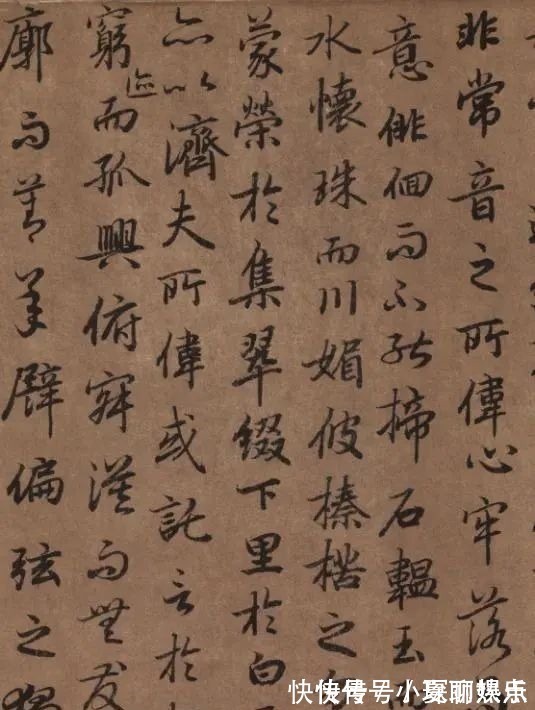 非常音之所偉心牢落
意俳佪而不能揥石韞玉
水懷珠而川媚彼榛楛之
蒙榮於集翠綴下里於白
亦以濟夫所偉或託言於
窮迹而孤興俯寂漠而無友
廓而莫承譬偏弦之獨